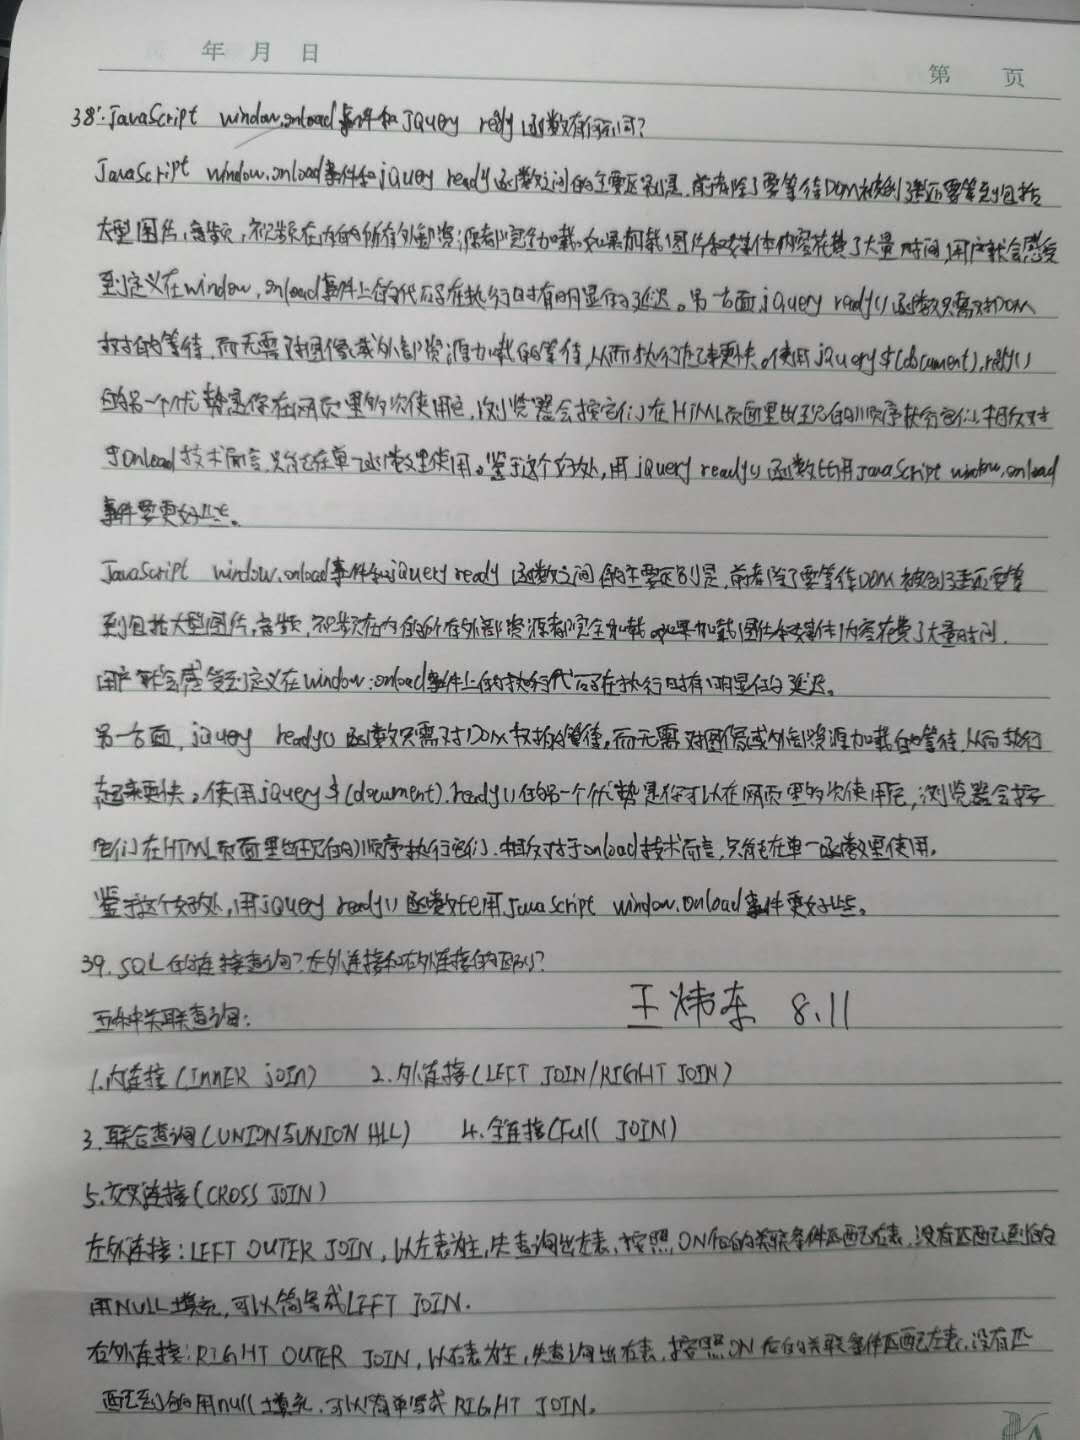 年 月 日
第 页
38、JavaScript window.onload事件和JQuery redy函数有何不同?
JavaScript window.onload事件和jQuery ready函数之间的主要区别是,前者除了要等待DOM被创建还要等到包括
大型图片,音频,视频在内的所有外部资源都完全加载。如果加载图片和媒体内容花费了大量时间,用户就会感受
到定义在window.onload事件上的代码在执行时有明显的延迟。另一方面,jQuery ready()函数只需对DOM
树的等待,而无需对图像或外部资源加载的等待,从而执行起来更快。使用jQuery $(document).redy()
的另一个优势是你在网页里多次使用它,浏览器会按它们在HTML页面里出现的顺序执行它们,相反对
于onload技术而言,只能在单一函数里使用。鉴于这个好处,用jQuery ready()函数比用JavaScript window.onload
事件要更好些。
JavaScript window.onload事件和jQuery ready函数之间的主要区别是,前者除了要等待DOM被创建还要等
到包括大型图片,音频,视频在内的所有外部资源都完全加载。如果加载图片和媒体内容花费了大量时间,
用户就会感受到定义在window.onload事件上的执行代码在执行时有明显的延迟。
另一方面,jQuery ready()函数只需对DOM树的等待,而无需对图像或外部资源加载的等待,从而执行
起来更快。使用jQuery $(document).ready()的另一个优势是你可以在网页里多次使用它,浏览器会按
它们在HTML页面里出现的顺序执行它们,相反对于onload技术而言,只能在单一函数里使用。
鉴于这个好处,用jQuery ready()函数比用JavaScript window.onload事件更好些。
39、SQL的连接查询?左外连接和右外连接的区别?
五种关联查询:
王炜东 8.11
1.内连接(INNER JOIN) 2.外连接(LEFT JOIN/RIGHT JOIN)
3.联合查询(UNION与UNION ALL) 4.全连接(Full JOIN)
5.交叉连接(CROSS JOIN)
左外连接:LEFT OUTER JOIN,以左表为主,先查询出左表,按照ON后的关联条件匹配右表,没有匹配到的
用NULL填充,可以简写成LEFT JOIN.
右外连接:RIGHT OUTER JOIN,以右表为主,先查询出右表,按照ON后的关联条件匹配左表,没有匹
配到的用null填充,可以简单写成RIGHT JOIN。